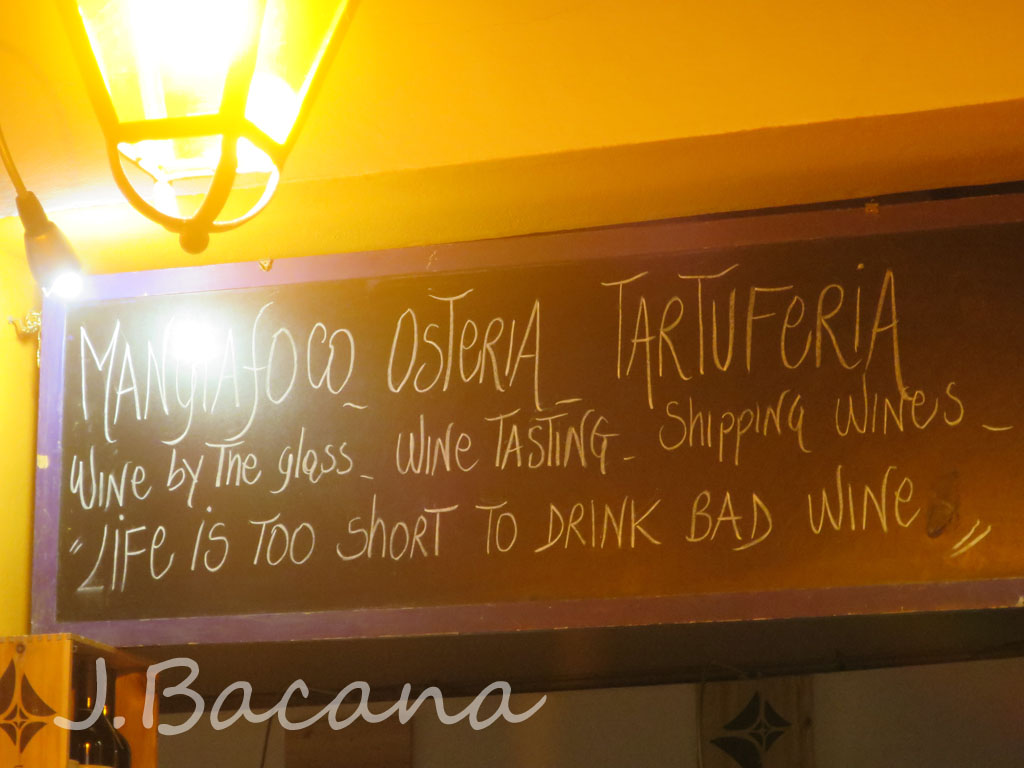 MANGIAFOCO_ OSTERIA_ TARTUFERIA
WINE by The glass_ WINE TASTING_ Shipping WINES_
"LIFE IS TOO SHORT TO DRINK BAD WINE"
J.Bacana